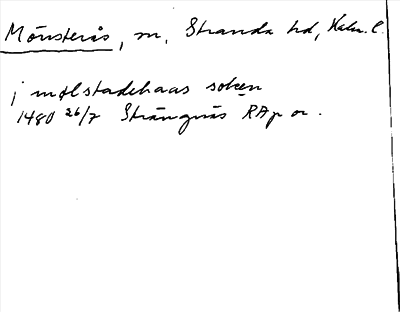 Mönsterås, sn, Stranda hd, Kalm. l.
i mølstadehaas soken
1480 26/7 Strängnäs RAp or.